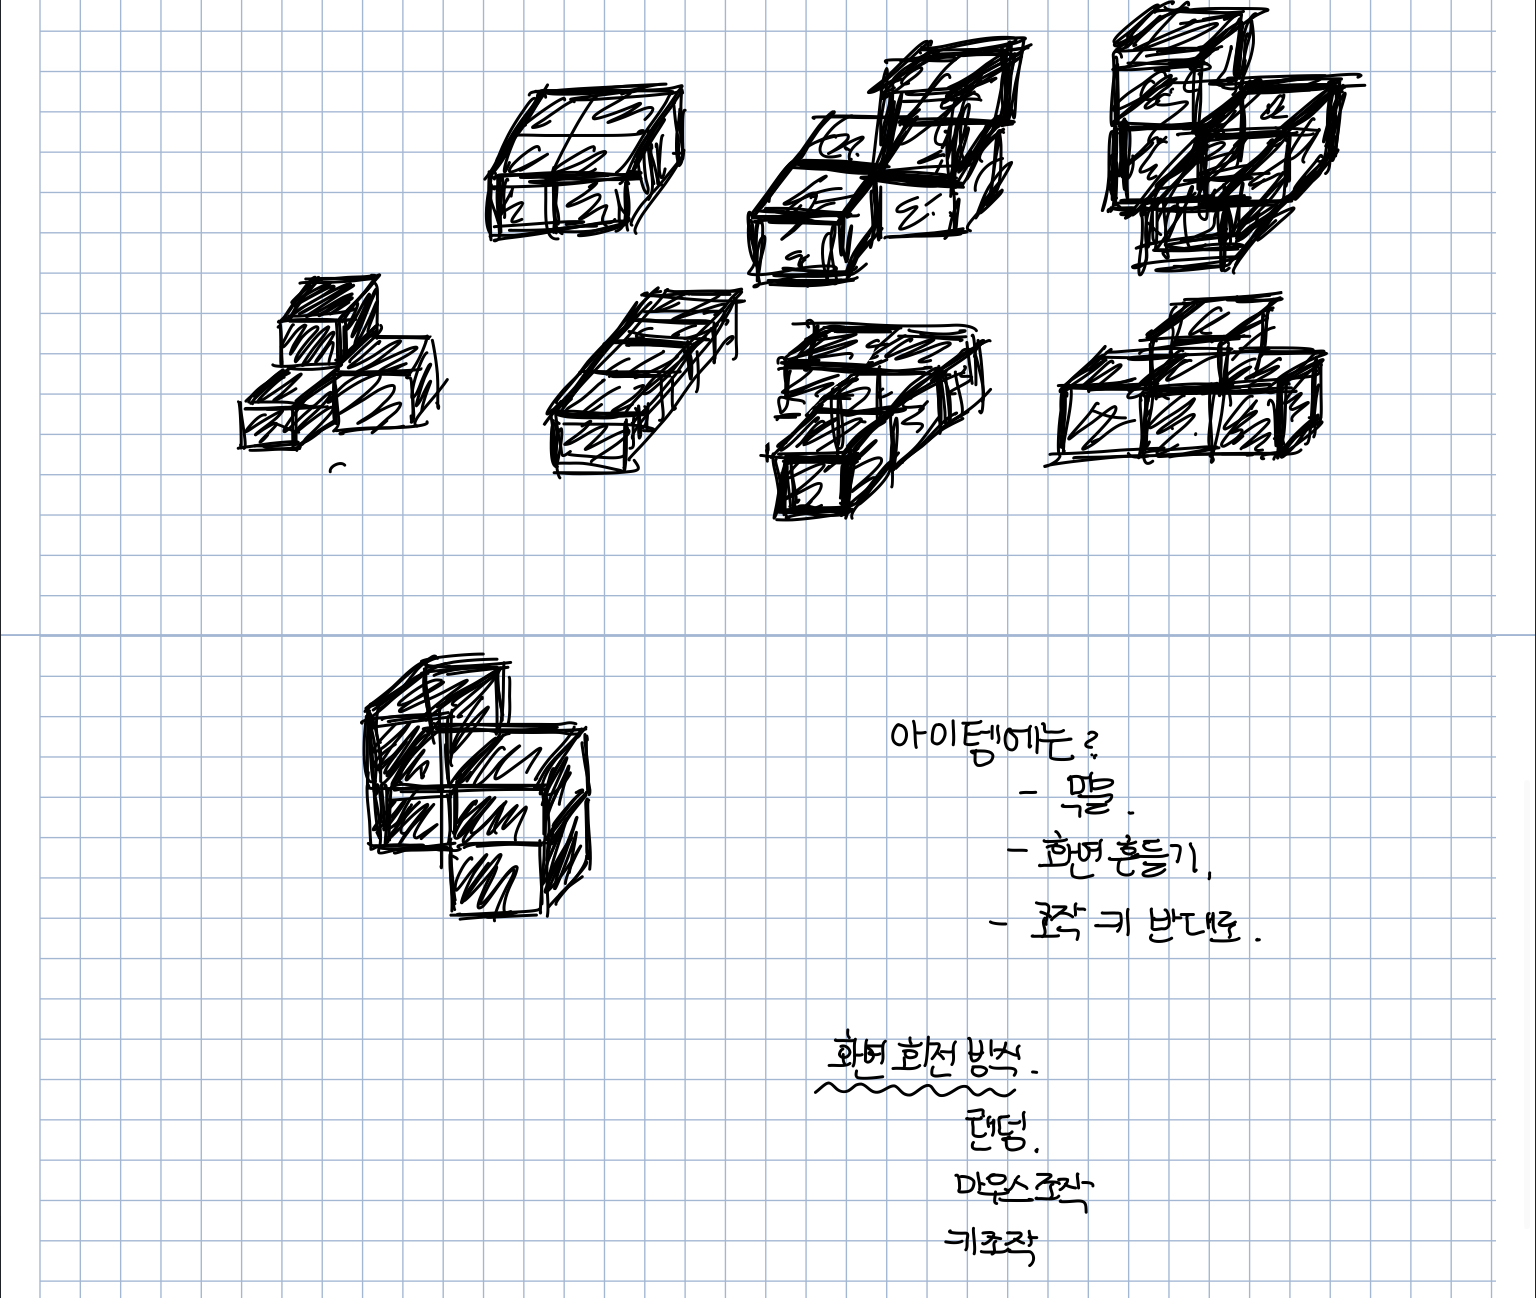 아이템에는?
- 먹물.
- 화면 흔들기.
- 조작 키 반대로.
화면 회전 방식.
랜덤.
마우스 조작
키조작